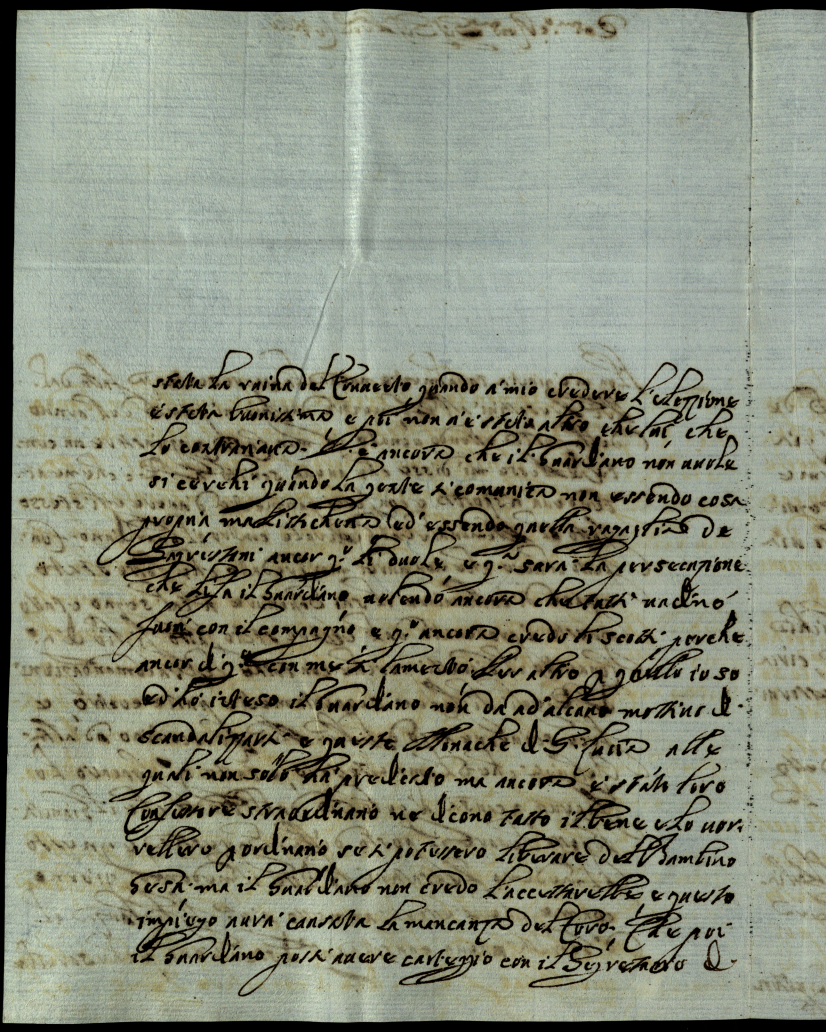 stata la ruina del Convento quando a mio credere l'elezzione
è stata buonissima e poi non v'è stato altro che lui, che
lo contrariava. è ancora che il Guardiano non vuole
si cerchi quando la gente si comunica non essendo cosa
propria ed essendo quella de
ancor q.o li duole e q.a sarà la persecuzione
che li fà il Guardiano volendo ancora che tutti vadino
fuori con el compagno e q.o ancora credo li scotti perche
ancor di q.o con me si lamentò. Per altro p quello io so
ed hò inteso il Guardiano non da ad alcuno mottivo di
scandalizzarsi e queste Monache di S. Lucia alle
quali non solo hà predicato ma ancora è stato loro
Confessore straordinario ne dicono tutto il bene e lo vor:
rebbero p ordinario se si potessero liberare del Bambino
Gesù ma il Guardiano non credo l'accettarebbe e questo
impiego avrà causata la mancanza del Coro. Che poi
il Guardiano possi avere carteggio con il Segretario di